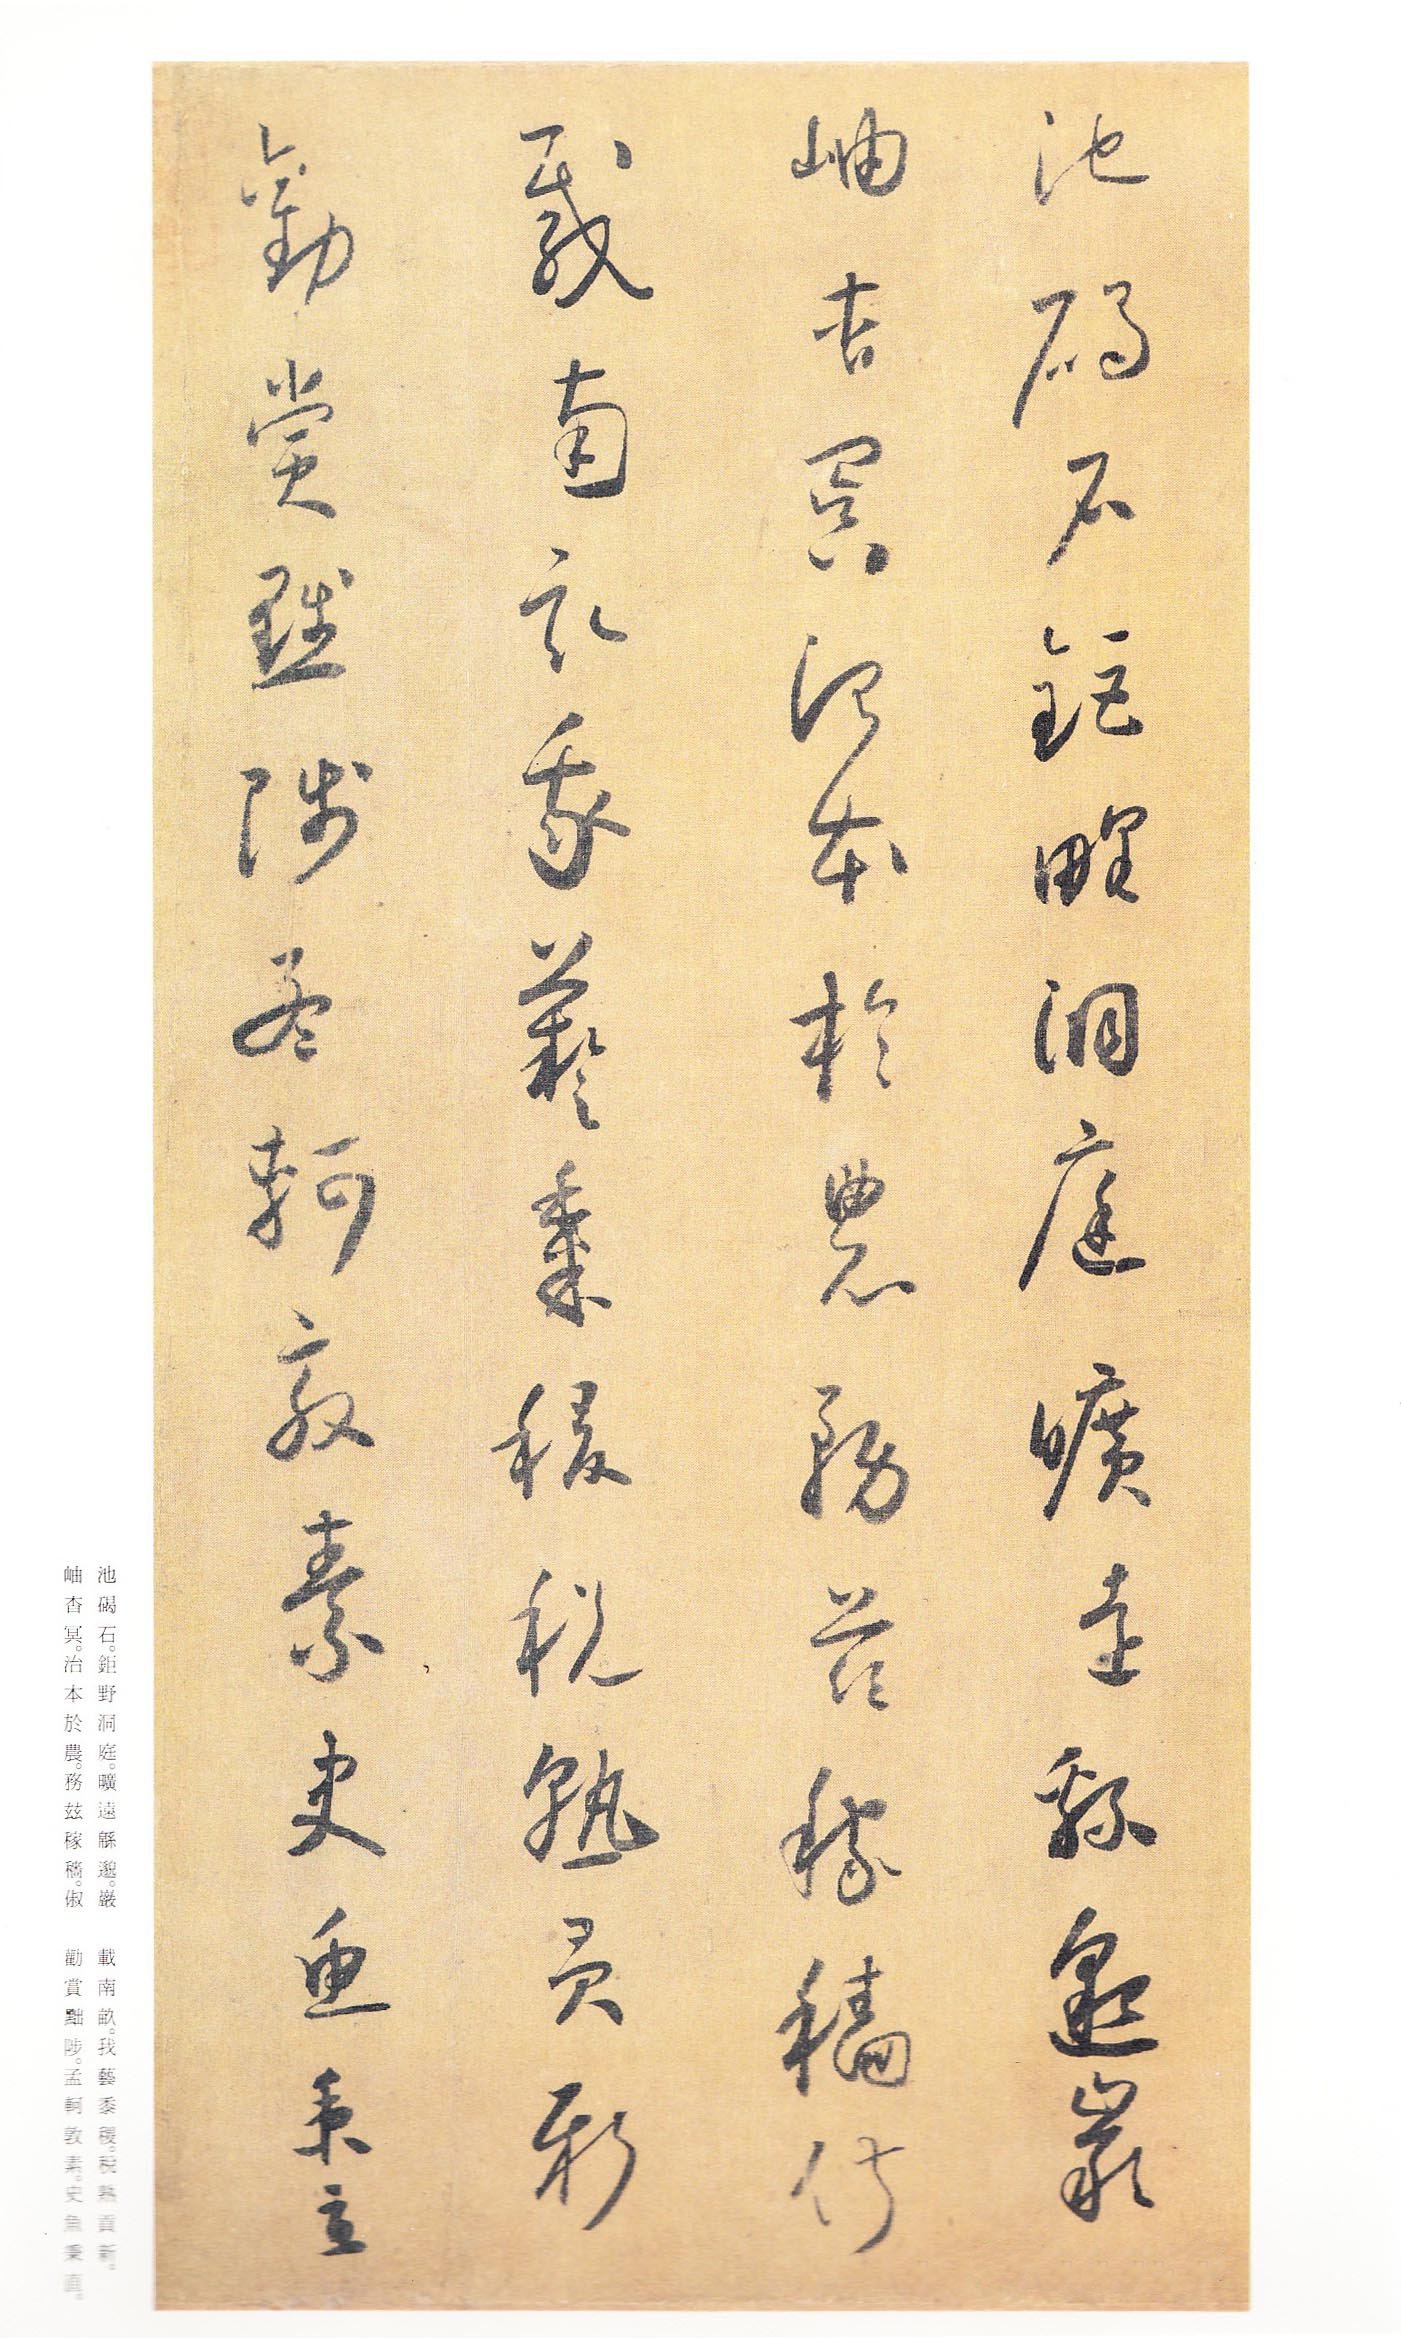 池碣石鉅野洞庭曠遠緜邈巖
岫杳冥治本於農務茲稼穡俶
載南畝我藝黍稷稅熟貢新
勸賞黜陟孟軻敦素史魚秉直
池碣石。鉅野洞庭。曠遠緜邈。巖
岫杳冥。治本於農。務玆稼穡。俶
載南畝。我藝黍稷。稅熟貢新。
勸賞黜陟。孟軻敦素。史魚秉直。